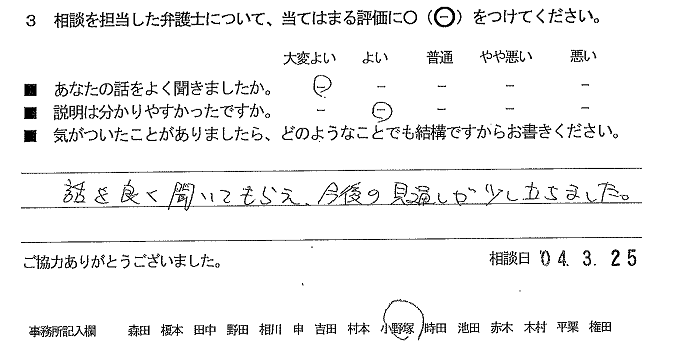 3 相談を担当した弁護士について、当てはまる評価に○（⊖）をつけてください。
大変よい よい 普通 やや悪い 悪い
■ あなたの話をよく聞きましたか。 － － － － －
■ 説明は分かりやすかったですか。 － － － － －
■ 気がついたことがありましたら、どのようなことでも結構ですからお書きください。
話を良く聞いてもらえ、今後の見通しが少し立ちました。
ご協力ありがとうございました。 相談日 '04. 3. 25
事務所記入欄 森田 榎本 田中 野田 相川 申 吉田 村本 小野塚 時田 池田 赤木 木村 平栗 権田